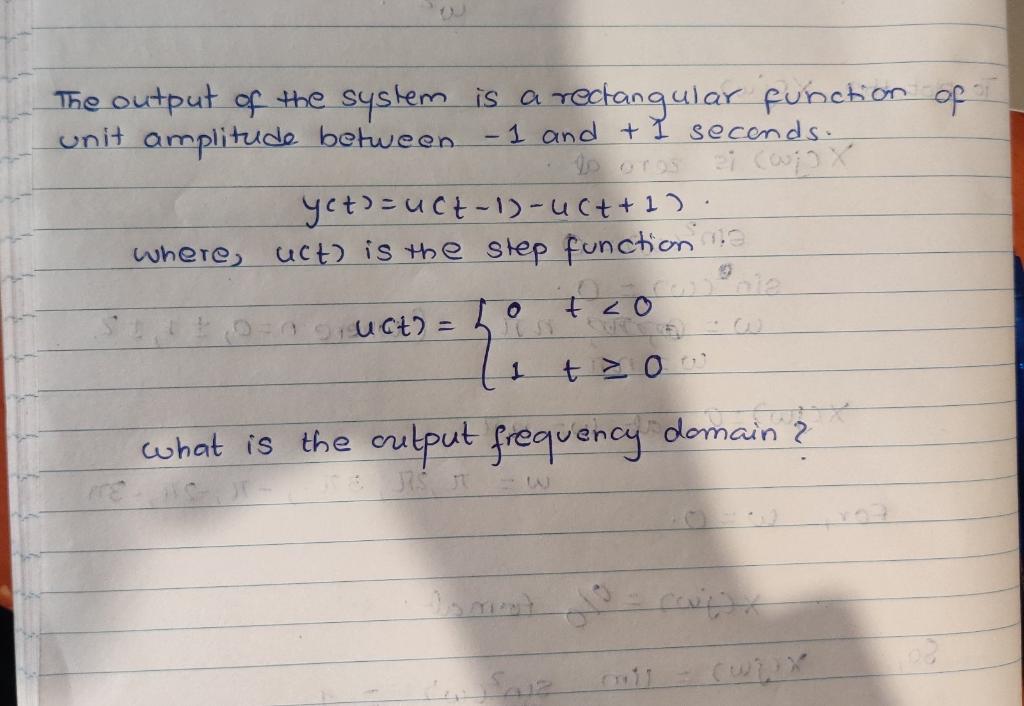 The output of the system is a rectangular function of
unit amplitude between -1 and +1 seconds.
y(t) = u(t-1) - u(t+1).
where, u(t) is the step function
u(t) = { 0 t < 0
1 t ≥ 0
what is the output frequency domain ?